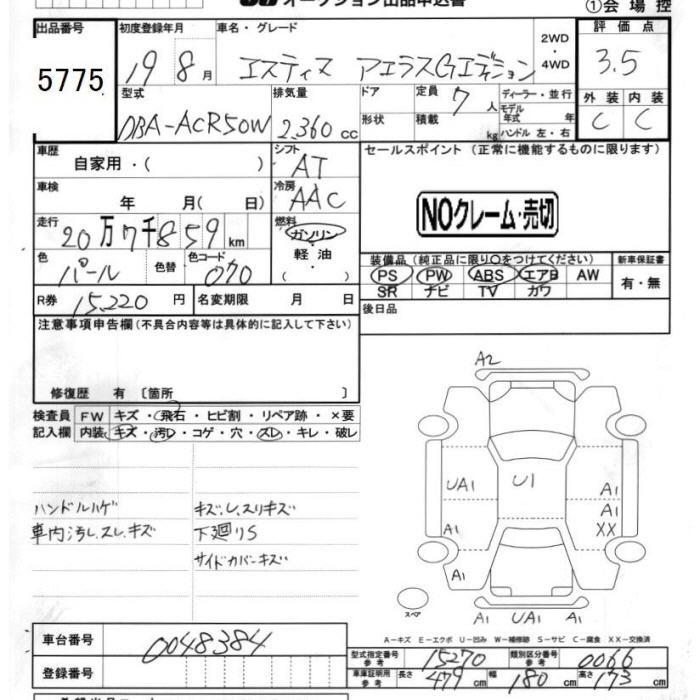 オークション出品申込書
①会場控
出品番号
5775
初度登録年月
19 8 月
車名・グレード
エスティマ アエラスGエディション
2WD
・
4WD
評価点
3.5
外装 内装
C C
型式
DBA-ACR50W
排気量
2,360 cc
ドア
形状
定員 7 人
積載 kg
ディーラー・並行
モデル
年式 年
ハンドル 左・右
車歴
自家用・( )
シフト
AT
セールスポイント (正常に機能するものに限ります)
NOクレーム・売切
車検
年 月( 日)
冷房
AAC
走行
20万7千859 km
燃料
ガソリン
・
軽油
・
( )
色
パール
色替
色コード
070
装備品 (純正品に限り○をつけてください)
PS PW ABS エアB AW
SR ナビ TV カワ
新車保証書
有・無
R券 15,220 円
名変期限 月 日
後日品
注意事項申告欄(不具合内容等は具体的に記入して下さい)
修復歴 有〔箇所 〕
検査員 FW キズ・飛石・ヒビ割・リペア跡・×要
記入欄 内装 キズ・汚レ・コゲ・穴・スレ・キレ・破レ
ハンドルハゲ
車内汚レ、スレ、キズ
キズ、U、スリキズ
下廻りS
サイドカバーキズ
A2
UA1
U1
A1
A1
A1
XX
A1
スペア
A1 UA1 A1
A-キズ E-エクボ U-凹み W-補修跡 S-サビ C-腐食 XX-交換済
車台番号
0048384
登録番号
型式指定番号
参考
15270
類別区分番号
参考
0066
車庫証明用
参考
長さ 479 cm 幅 180 cm 高さ 173 cm